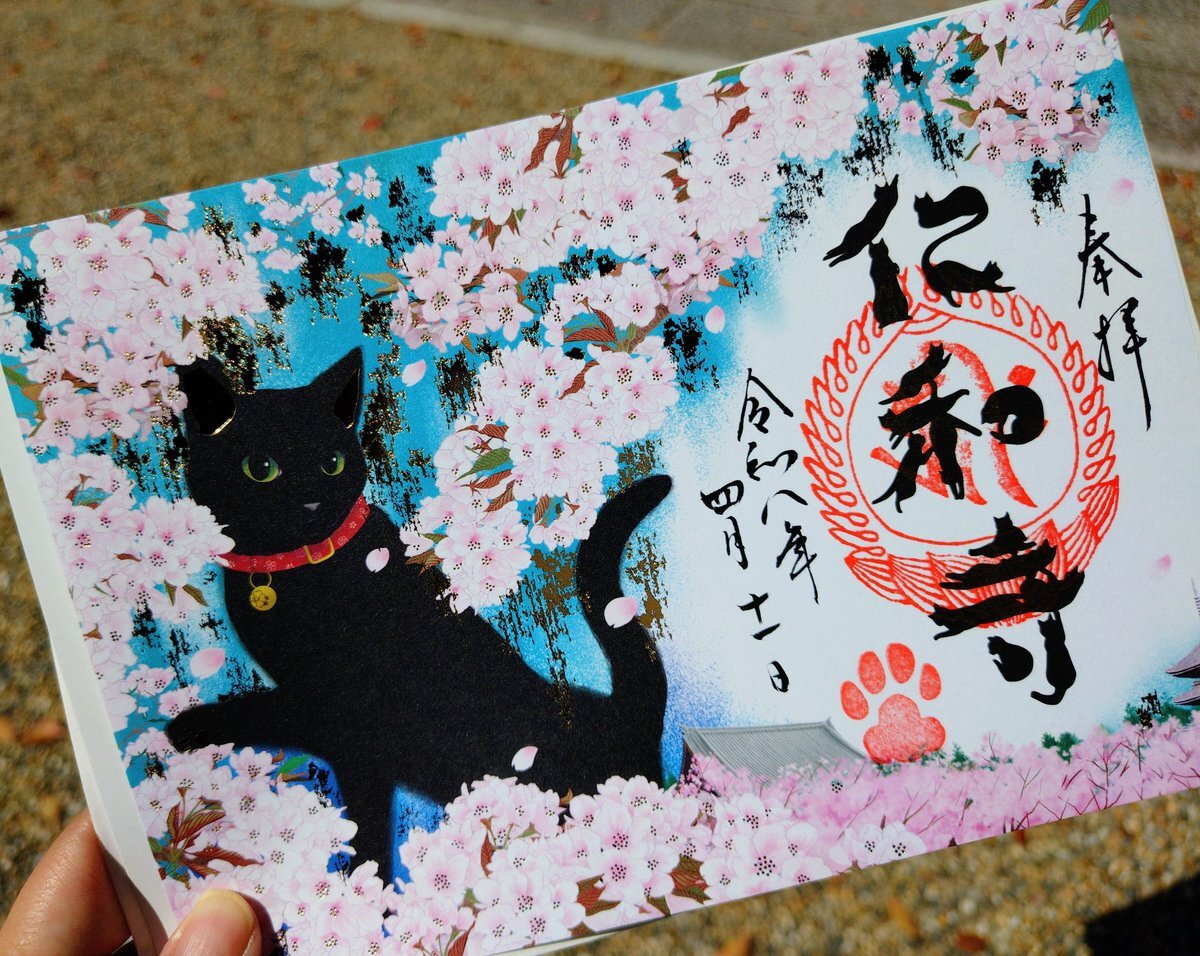 奉拝
仁和寺
令和八年
四月十一日